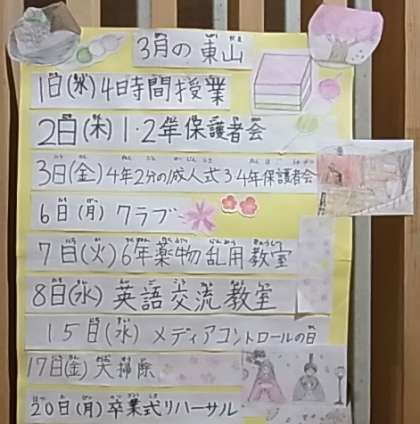 3月の東山
1日(水)4時間授業
2日(木)1・2年保護者会
3日(金)4年2分の1成人式 3・4年保護者会
6日(月)クラブ
7日(火)6年薬物乱用教室
8日(水)英語交流教室
15日(水)メディアコントロールの日
17日(金)大掃除
20日(月)卒業式リハーサル